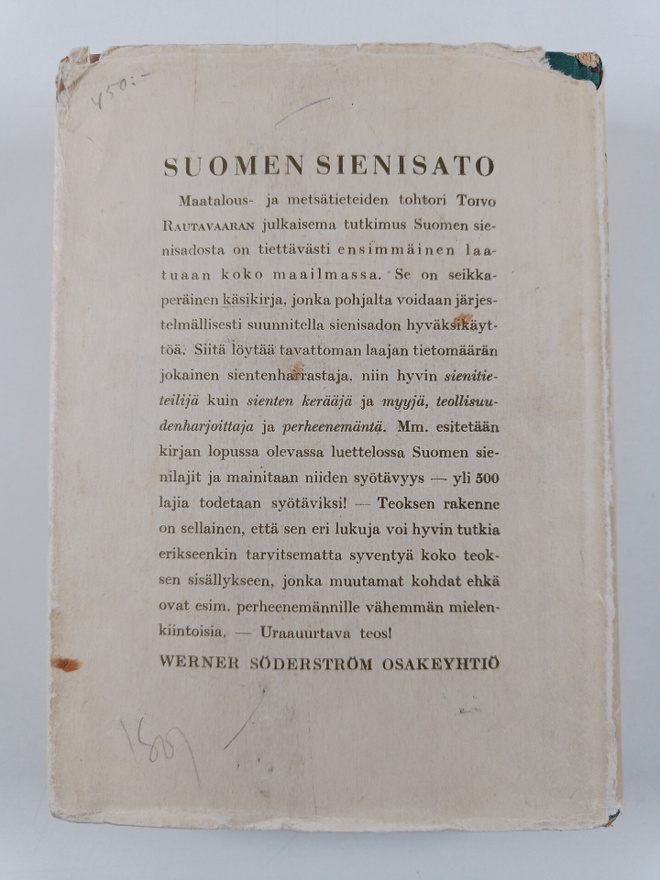 450:-
SUOMEN SIENISATO
Maatalous- ja metsätieteiden tohtori TOIVO
RAUTAVAARAN julkaisema tutkimus Suomen sie-
nisadosta on tiettävästi ensimmäinen laa-
tuaan koko maailmassa. Se on seikka-
peräinen käsikirja, jonka pohjalta voidaan järjes-
telmällisesti suunnitella sienisadon hyväksikäyt-
töä. Siitä löytää tavattoman laajan tietomäärän
jokainen sientenharrastaja, niin hyvin sienitie-
teilijä kuin sienten kerääjä ja myyjä, teollisuu-
denharjoittaja ja perheenemäntä. Mm. esitetään
kirjan lopussa olevassa luettelossa Suomen sie-
nilajit ja mainitaan niiden syötävyys — yli 500
lajia todetaan syötäviksi! — Teoksen rakenne
on sellainen, että sen eri lukuja voi hyvin tutkia
erikseenkin tarvitsematta syventyä koko teok-
sen sisällykseen, jonka muutamat kohdat ehkä
ovat esim. perheenemännille vähemmän mielen-
kiintoisia. — Uraauurtava teos!
WERNER SÖDERSTRÖM OSAKEYHTIÖ